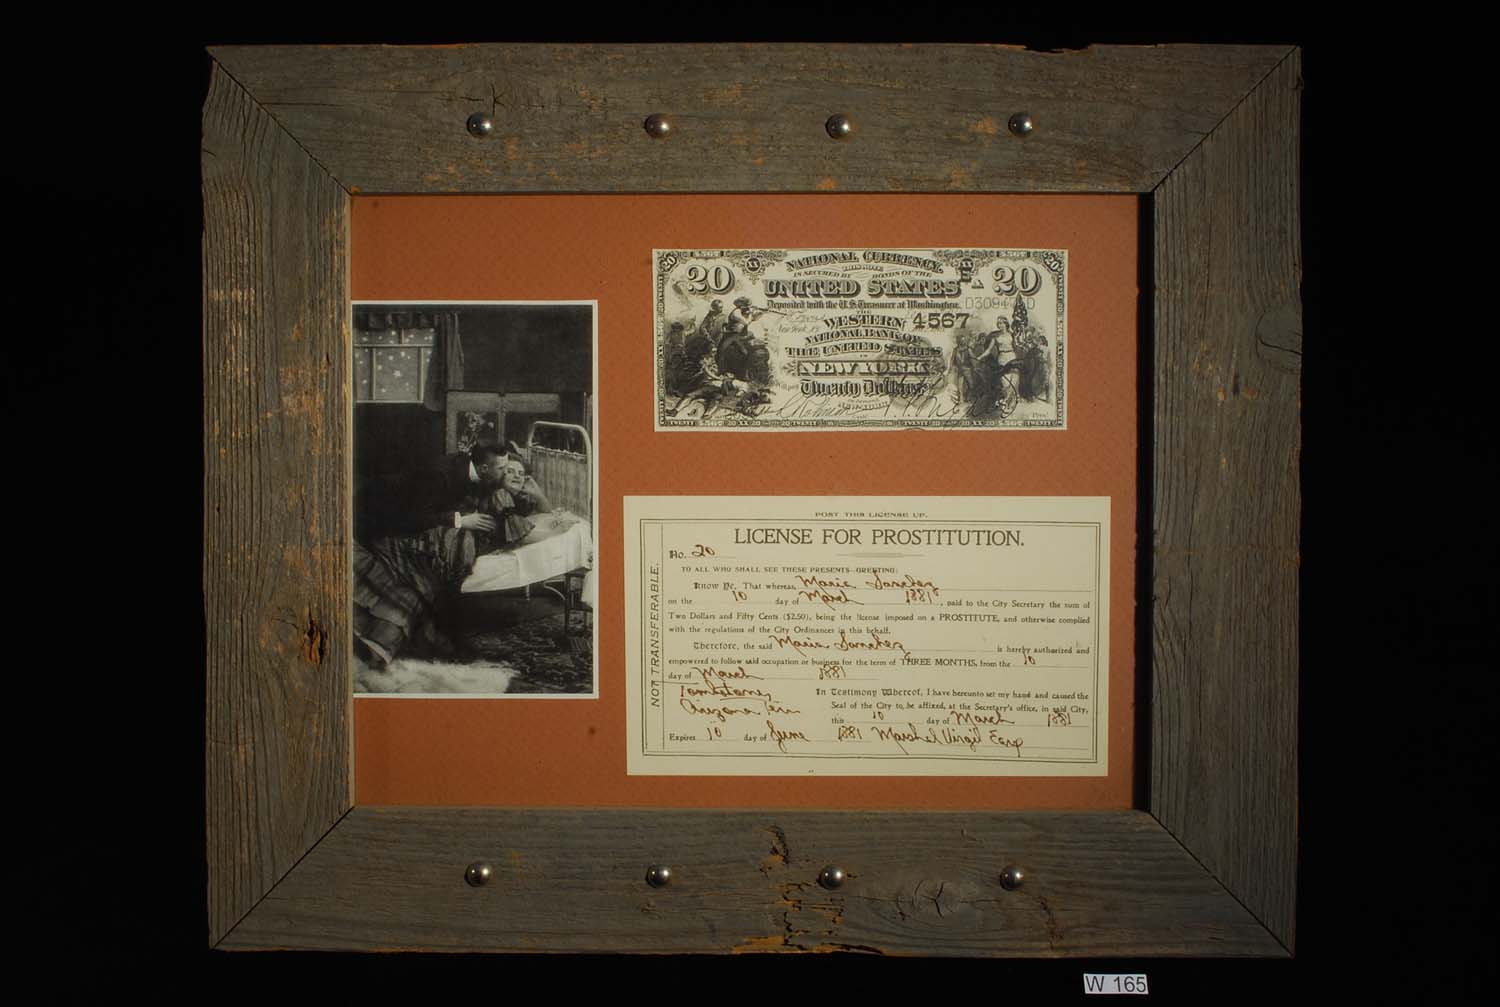 20
NATIONAL CURRENCY
THIS NOTE
IS SECURED BY BONDS OF THE
UNITED STATES
20
Deposited with the U.S. Treasurer at Washington.
THE
WESTERN
4567
NATIONAL BANK OF
THE UNITED STATES
IN
NEW YORK
Twenty Dollars
TWENTY
POST THIS LICENSE UP.
LICENSE FOR PROSTITUTION.
No. 20
TO ALL WHO SHALL SEE THESE PRESENTS—GREETING:
Know Ye, That whereas, Maria Sanchez
on the 10 day of March 1881, paid to the City Secretary the sum of
Two Dollars and Fifty Cents ($2.50), being the license imposed on a PROSTITUTE, and otherwise complied
with the regulations of the City Ordinances in this behalf.
Therefore, the said Maria Sanchez is hereby authorized and
empowered to follow said occupation or business for the term of THREE MONTHS, from the 10
day of March 1881
Tombstone,
Arizona Terr
In Testimony Whereof, I have hereunto set my hand and caused the
Seal of the City to be affixed, at the Secretary's office, in said City,
this 10 day of March 1881
Expires 10 day of June 1881 Marshel Virgil Earp
NOT TRANSFERABLE.
W 165